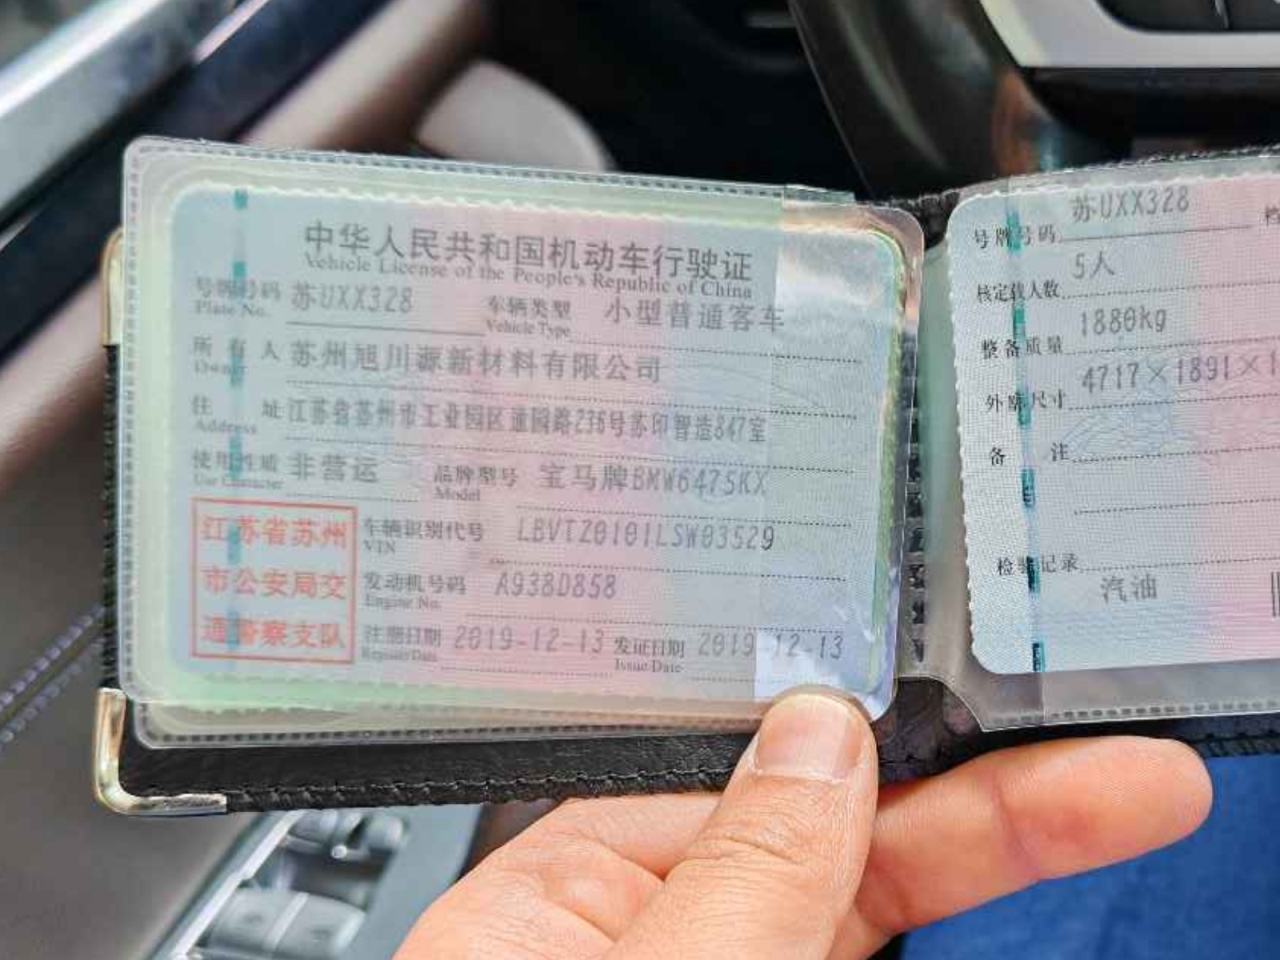 中华人民共和国机动车行驶证
Vehicle License of the People's Republic of China
号牌号码 苏UXX328 车辆类型 小型普通客车
Plate No. Vehicle Type
所有人 苏州旭川源新材料有限公司
Owner
住址 江苏省苏州市工业园区通园路236号苏印智造847室
Address
使用性质 非营运 品牌型号 宝马牌BMW6475KX
Use Character Model
车辆识别代号 LBVTZ0101LSW03529
VIN
发动机号码 A938D858
Engine No.
注册日期 2019-12-13 发证日期 2019-12-13
Register Date Issue Date
江苏省苏州
市公安局交
通警察支队
号牌号码 苏UXX328
核定载人数 5人
整备质量 1880kg
外廓尺寸 4717×1891×1
备注
检验记录
汽油